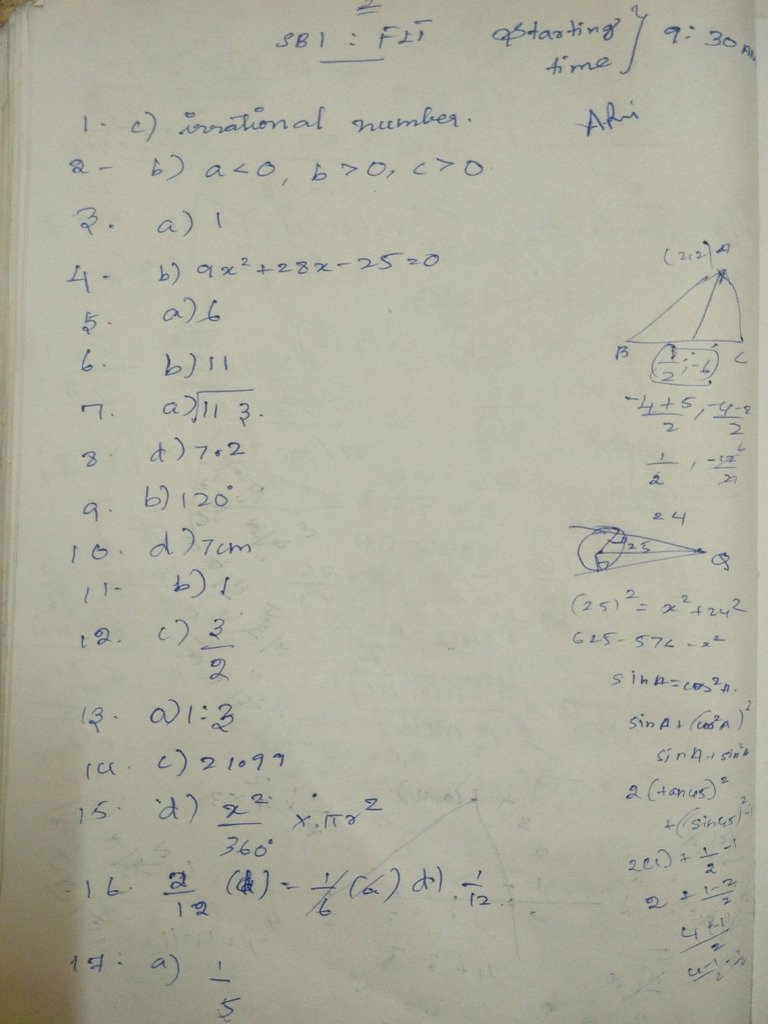 2
SB1 : FLT
Starting time } 9:30 AM
1. c) irrational number.
2- b) a<0, b>0, c>0
3. a) 1
4- b) 9x²+28x-25=0
5. a) 6
6. b) 11
7. a) √113.
8. d) 7.2
9. b) 120°
10. d) 7cm
11- b) 1
12. c) 3/2
13. a) 1:3
14. c) 21099
15. d) x²/360° × πr²
16. 2/12 = 1/6 (a) d) 1/12
17. a) 1/5
(2,2) A
B C
(1/2, -6)
-4+5/2, -4-8/2
1/2, -12/2 6
24
25 Q
(25)² = x²+24²
625-576 = x²
sinA = cos²A.
sinA + (cos²A)²
sinA + sin²A
2(tan45)²
+(sin45)²-1
2(1) + 1/2 -1
2 + 1-2/2